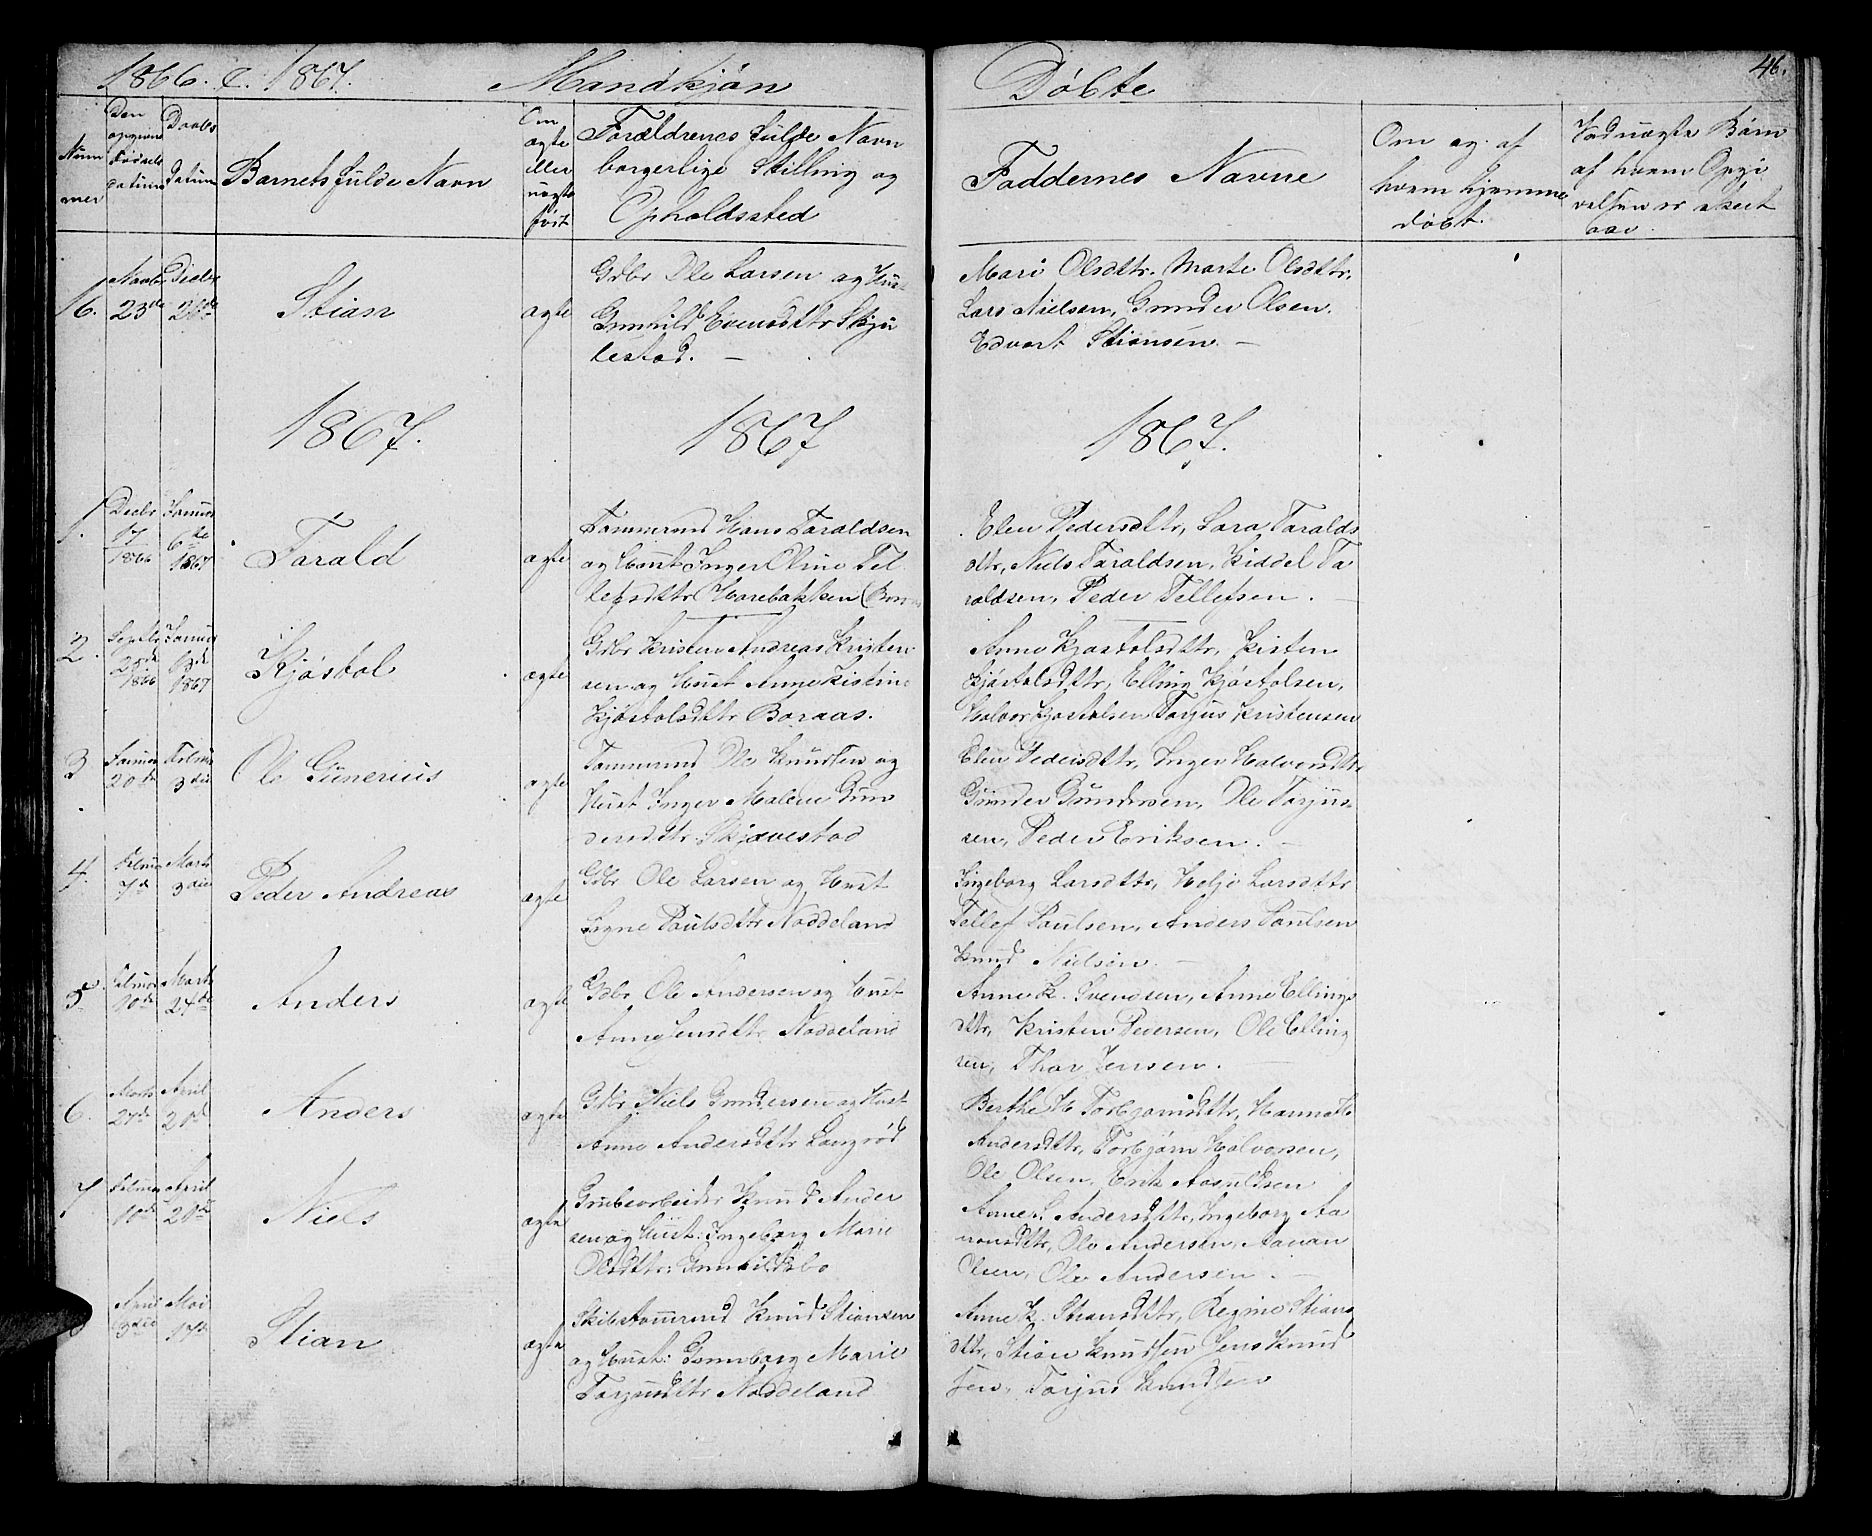 1866. & 1867. Mandkjøn
Døbte
46.
Num
mer
Den
opgivne
Fødsels
datum
Daabs
Datum
Barnets fulde Navn
Om
ægte
eller
uægte
født
Forældrenes fulde Navn
borgerlige Stilling og
Opholdssted
Faddernes Navne
Om og af
hvem hjemme
døbt.
Ved uægte Børn
af hvem Opgi
velsen er skeet
16.
Novbr
23de
Decbr
Stian
ægte
Gdbr Ole Larsen og Hust
Gunhild Evensdttr Skju
lestad. —
Mari Olsdttr. Marte Olsdttr,
Lars Nielsen, Gunder Olsen.
Edvart Stiansen. —
1867.
1867
1867.
1.
Decbr
17
1866
Januar
6te
1867
Tarald
ægte
Tømmermd Hans Taraldsen
og Hust Inger Oline Tel
lefsdttr Harebakken
Elen Pedersdttr, Sara Taralds
dttr, Niels Taraldsen, Kiddel Ta
raldsen, Peder Tellefsen. —
2.
Septbr
1866
Januar
1867
Kjøstol
ægte
Gdbr Kristen Andreas Kristen
sen og Hust Anne Kistine
Kjøstolsdttr Boraas.
Anne Kjøstolsdttr, Kisten
Kjøstolsdttr, Elling Kjøstolsen,
Halvor Kjøstolsen Tarjus Kristensen
3
Januar
20de
Februar
3die
Ole Gunerius
ægte
Tømmermd Ole Knudsen og
Hust Inger Malene Gun
dersdttr Skjævestad
Elen Pedersdttr, Inger Halvorsdttr
Gunder Gundersen, Ole Tarjus
sen, Peder Eriksen. —
4.
Februar
7de
Marts
3die
Peder Andreas
ægte
Gdbr Ole Larsen og Hust
Signe Poulsdttr Nøddeland
Ingeborg Larsdttr, Helje Larsdttr
Tellef Paulsen, Anders Paulsen
Knud Nielsen. —
5.
Februar
10de
Marts
24de
Anders
ægte
Gdbr Ole Andersen og Hust
Anne Jensdttr Nøddeland
Anne K. Svendsen, Anne Ellings
dttr, Kristen Pedersen, Ole Elling
sen, Thor Jensen. —
6.
Marts
April
Anders
ægte
Gdbr Niels Gundersen og Hust
Anne Andersdttr Langrød
Berthe H Torbjørnsdttr, Hanna H.
Andersdttr, Torbjørn Halvorsen,
Ole Olsen, Erik Aasuldsen
7
Februar
April
Niels
ægte
Grubearbeider Knud Ander
sen og Hust: Ingeborg Marie
Olsdttr: Gunhildsbo
Anne L Andersdttr, Ingeborg Aa
nonsdttr, Ole Andersen, Aanan
Olsen, Ole Andersen. —
April
3die
Mai
Stian
ægte
Skibstømmermd Knud Stiansen
og Hust: Gunnborg Marie
Tarjusdttr Nøddeland
Anne K. Stiansdttr, Regine Stians
dttr, Stian Knudsen Jens Knud
sen, Tarjus Knudsen